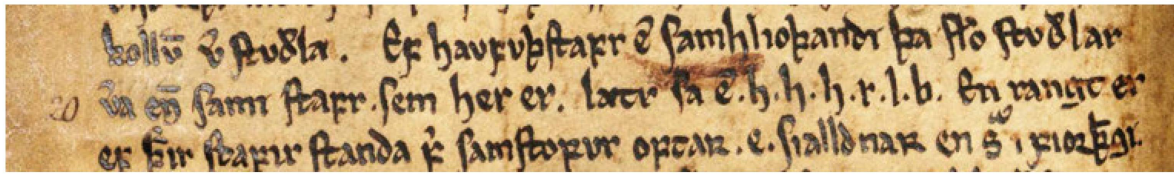 kollv̄ v̄ stvðla . Eꝼ havꝼvþstaꝼr ē samhlioþandi þa sło stvðlar
v̄a en̄ sami staꝼr . sem her er . lætr sa ē . h . h . h . r . l . b . En rangt er
eꝼ þ̄ir staꝼir standa ꝼ̄ samstoꝼvr optaʀ . e . sialldnaʀ en s̄ i ꝼiorþ̄gi .